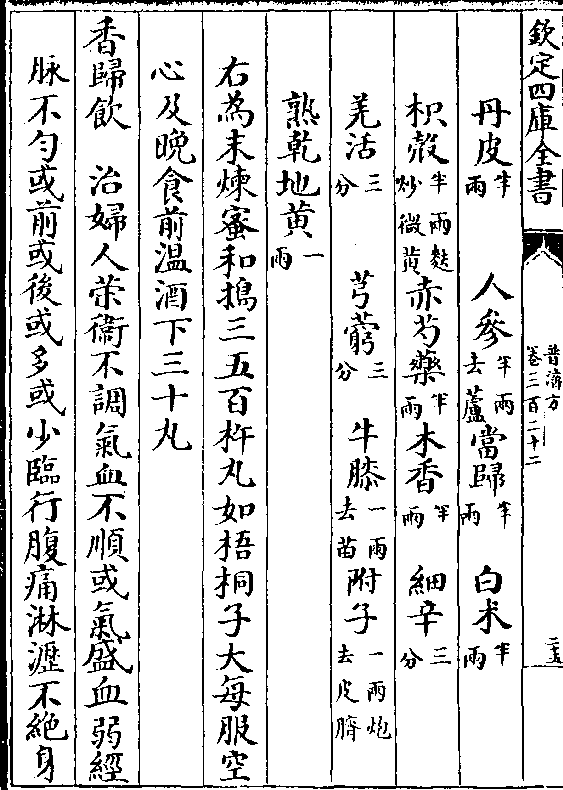 欽定四庫全書
普濟方
卷三百二十二
二五
丹皮半兩 人參半兩去蘆 當歸半兩 白术半兩
枳殼半兩麩炒微黄 赤芍藥半兩 木香半兩 細辛三分
羌活三分 芎藭三分 牛膝一兩去苗 附子一兩炮去皮臍
熟乾地黄一兩
右為末煉蜜和搗三五百杵丸如梧桐子大每服空
心及晚食前温酒下三十丸
香歸飲 治婦人榮衞不調氣血不順或氣盛血弱經
脉不勻或前或後或多或少臨行腹痛淋瀝不絶身